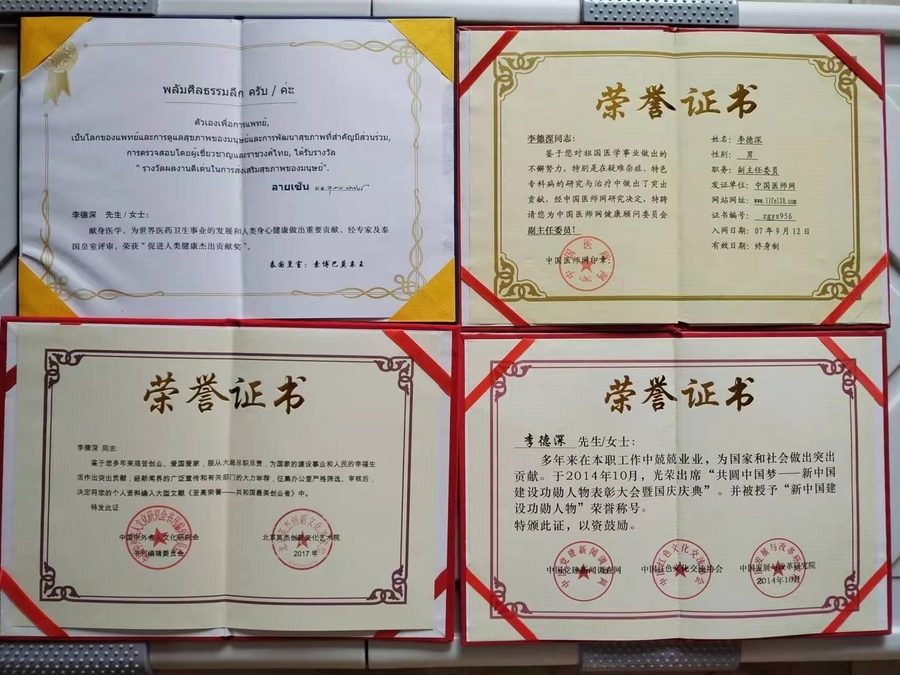 พลัมศิลธรรมลึก ครับ / ค่ะ
ตัวเองเพื่อการแพทย์,
เป็นโลกของแพทย์และการดูแลสุขภาพของมนุษย์และการพัฒนาสุขภาพที่สำคัญมีส่วนร่วม,
การตรวจสอบโดยผู้เชี่ยวชาญและราชวงศ์ไทย, ได้รับรางวัล
" รางวัลผลงานดีเด่นในการส่งเสริมสุขภาพของมนุษย์".
ลายเซ็น
李德深 先生/女士:
献身医学,为世界医药卫生事业的发展和人类身心健康做出重要贡献,经专家及泰
国皇室评审,荣获“促进人类健康杰出贡献奖”。
泰国皇室:素博巴莫亲王
荣誉证书
李德深同志:
鉴于您对祖国医学事业做出的
不懈努力,特别是在疑难杂症,特色
专科病的研究与治疗中做出了突出
贡献,经中国医师网研究决定,特聘
请您为中国医师网健康顾问委员会
副主任委员!
中国医师网印章:
姓名:李德深
性别:男
职务:副主任委员
发证单位:中国医师网
网站网址:www.life120.com
证书编号:zgys956
入网日期:07年9月12日
有效日期:终身制
荣誉证书
李德深 同志:
鉴于您多年来艰苦创业、爱国爱家,服从大局尽职尽责,为国家的建设事业和人民的幸福生
活作出突出贡献,经新闻界的广泛宣传和有关部门的大力举荐,征集办公室严格筛选、审核后,
决定将您的个人资料编入大型文献《至高荣誉——共和国最美创业者》中。
特发此证
中国中外名人文化研究会
书刊编辑委员会
北京英杰创新文化艺术院
2017年
荣誉证书
李德深 先生/女士:
多年来在本职工作中兢兢业业,为国家和社会做出突出
贡献。于2014年10月,光荣出席“共圆中国梦——新中国
建设功勋人物表彰大会暨国庆庆典”。并被授予“新中国建
设功勋人物”荣誉称号。
特颁此证,以资鼓励。
中国党建新闻调查网
中国红色文化交流协会
中国发展与改革研究院
2014年10月